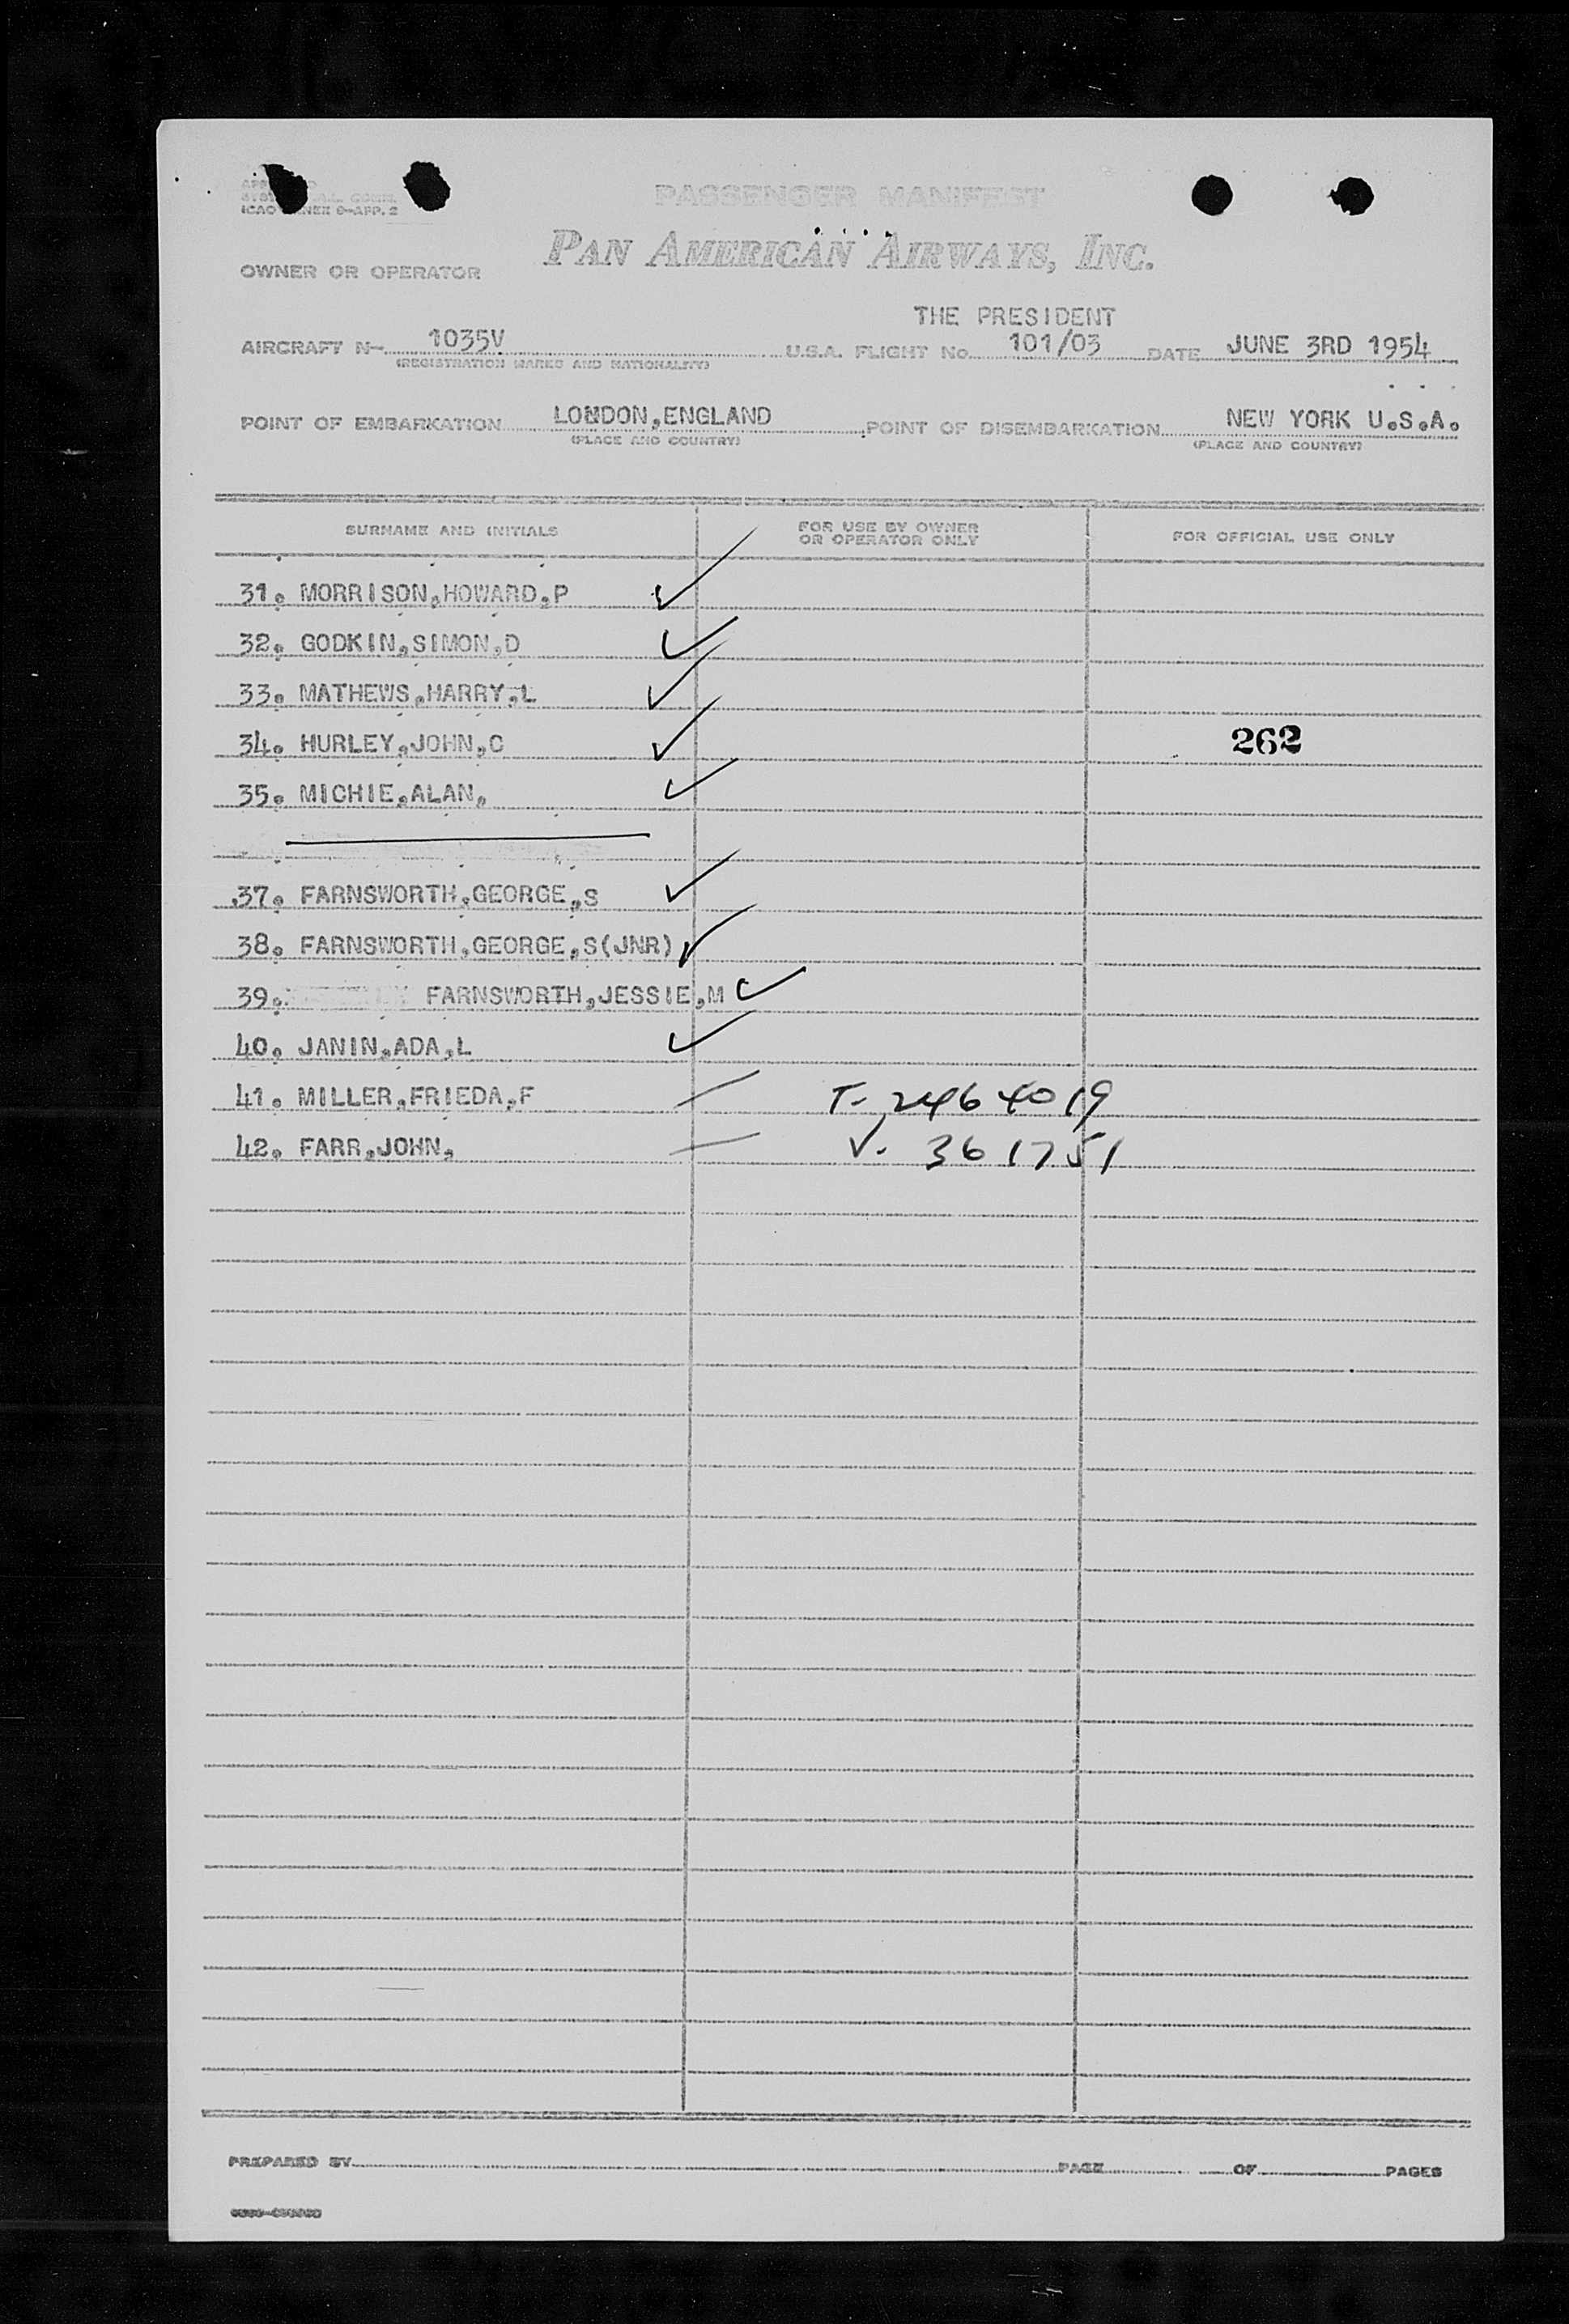 ICAO ANNEX 9-APP. 2
PASSENGER MANIFEST
PAN AMERICAN AIRWAYS, INC.
OWNER OR OPERATOR
THE PRESIDENT
AIRCRAFT N- 1035V U.S.A. FLIGHT No. 101/03 DATE JUNE 3RD 1954
(REGISTRATION MARKS AND NATIONALITY)
POINT OF EMBARKATION LONDON,ENGLAND POINT OF DISEMBARKATION NEW YORK U.S.A.
(PLACE AND COUNTRY) (PLACE AND COUNTRY)
SURNAME AND INITIALS FOR USE BY OWNER OR OPERATOR ONLY FOR OFFICIAL USE ONLY
31. MORRISON,HOWARD,P
32. GODKIN,SIMON,D
33. MATHEWS,HARRY,L
34. HURLEY,JOHN,C 262
35. MICHIE,ALAN,
37. FARNSWORTH,GEORGE,S
38. FARNSWORTH,GEORGE,S(JNR)
39. FARNSWORTH,JESSIE,M
40. JANIN,ADA,L
41. MILLER,FRIEDA,F T- 2464019
42. FARR,JOHN, V- 361751
PREPARED BY PAGE OF PAGES